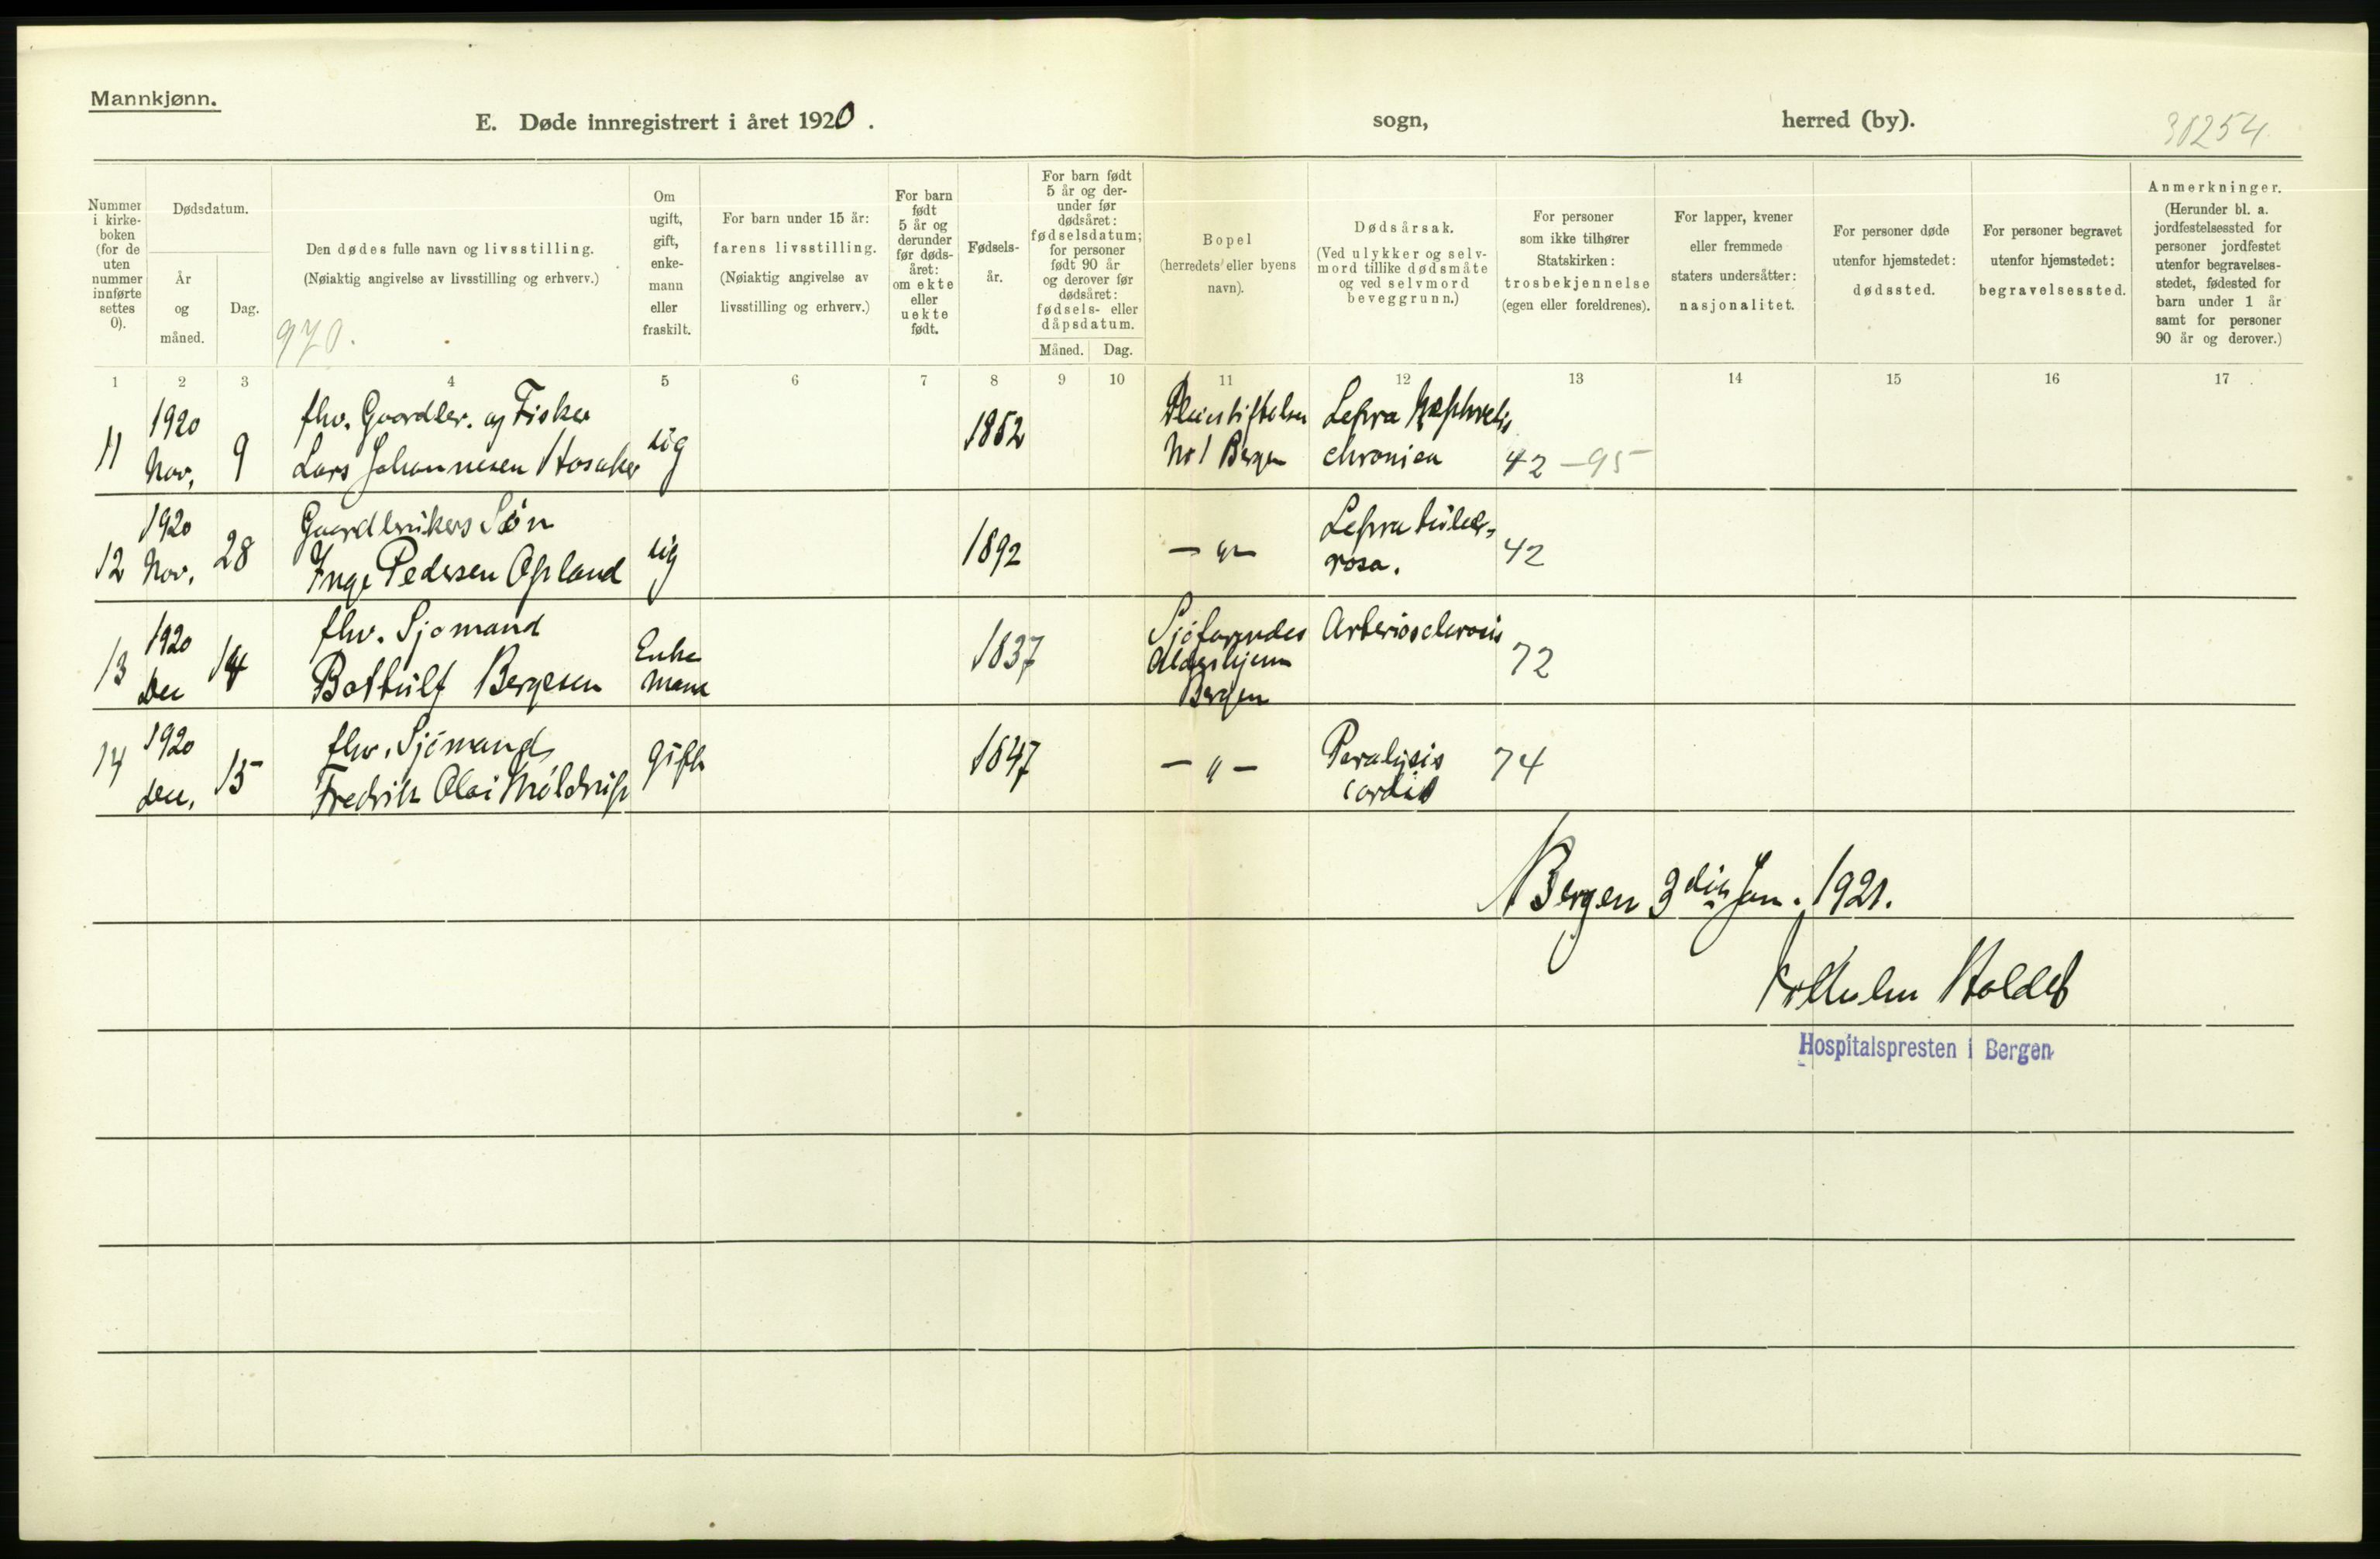 Mannkjønn.
E. Døde innregistrert i året 1920.
sogn,
herred (by).
30254
Nummer
i kirke-
boken
(for de
uten
nummer
innførte
settes
0).
Dødsdatum.
År
og
måned.
Dag.
Den dødes fulle navn og livsstilling.
(Nøiaktig angivelse av livsstilling og erhverv.)
970.
Om
ugift,
gift,
enke-
mann
eller
fraskilt.
For barn under 15 år:
farens livsstilling.
(Nøiaktig angivelse av
livsstilling og erhverv.)
For barn
født
5 år og
derunder
før døds-
året:
om ekte
eller
uekte
født.
Fødsels-
år.
For barn født
5 år og der-
under før
dødsåret:
fødselsdatum;
for personer
født 90 år
og derover før
dødsåret:
fødsels- eller
dåpsdatum.
Måned.
Dag.
Bopel
(herredets eller byens
navn).
Dødsårsak.
(Ved ulykker og selv-
mord tillike dødsmåte
og ved selvmord
beveggrunn.)
For personer
som ikke tilhører
Statskirken:
trosbekjennelse
(egen eller foreldrenes).
For lapper, kvener
eller fremmede
staters undersåtter:
nasjonalitet.
For personer døde
utenfor hjemstedet:
dødssted.
For personer begravet
utenfor hjemstedet:
begravelsessted.
Anmerkninger.
(Herunder bl. a.
jordfestelsessted for
personer jordfestet
utenfor begravelses-
stedet, fødested for
barn under 1 år
samt for personer
90 år og derover.)
1 2 3 4 5 6 7 8 9 10 11 12 13 14 15 16 17
11
1920
Nov,
9
fhv. Gaardbr. og Fisker
Lars Johannesen
ug
1852
Pleiestiftelsen
No 1 Bergen
Lepra Nephritis
chronica
42 - 95
12
1920
Nov.
28
Gaardbrukers Søn
Inge Pedersen Opland
ug
1892
— " —
Lepra tuber-
rosa.
42
13
1920
Dec
14
fhv. Sjømand
Botkulf Bergesen
Enke
mand
1837
Sjøfarendes
Aldershjem
Bergen
Arteriosclerosis
72
14
1920
Dec.
15
fhv. Sjømand
Fredrik Olai Møldrup
gift
1847
— " —
Paralysis
cordis
74
Bergen 3die Jan. 1921.
Vilhelm
Hospitalspresten i Bergen